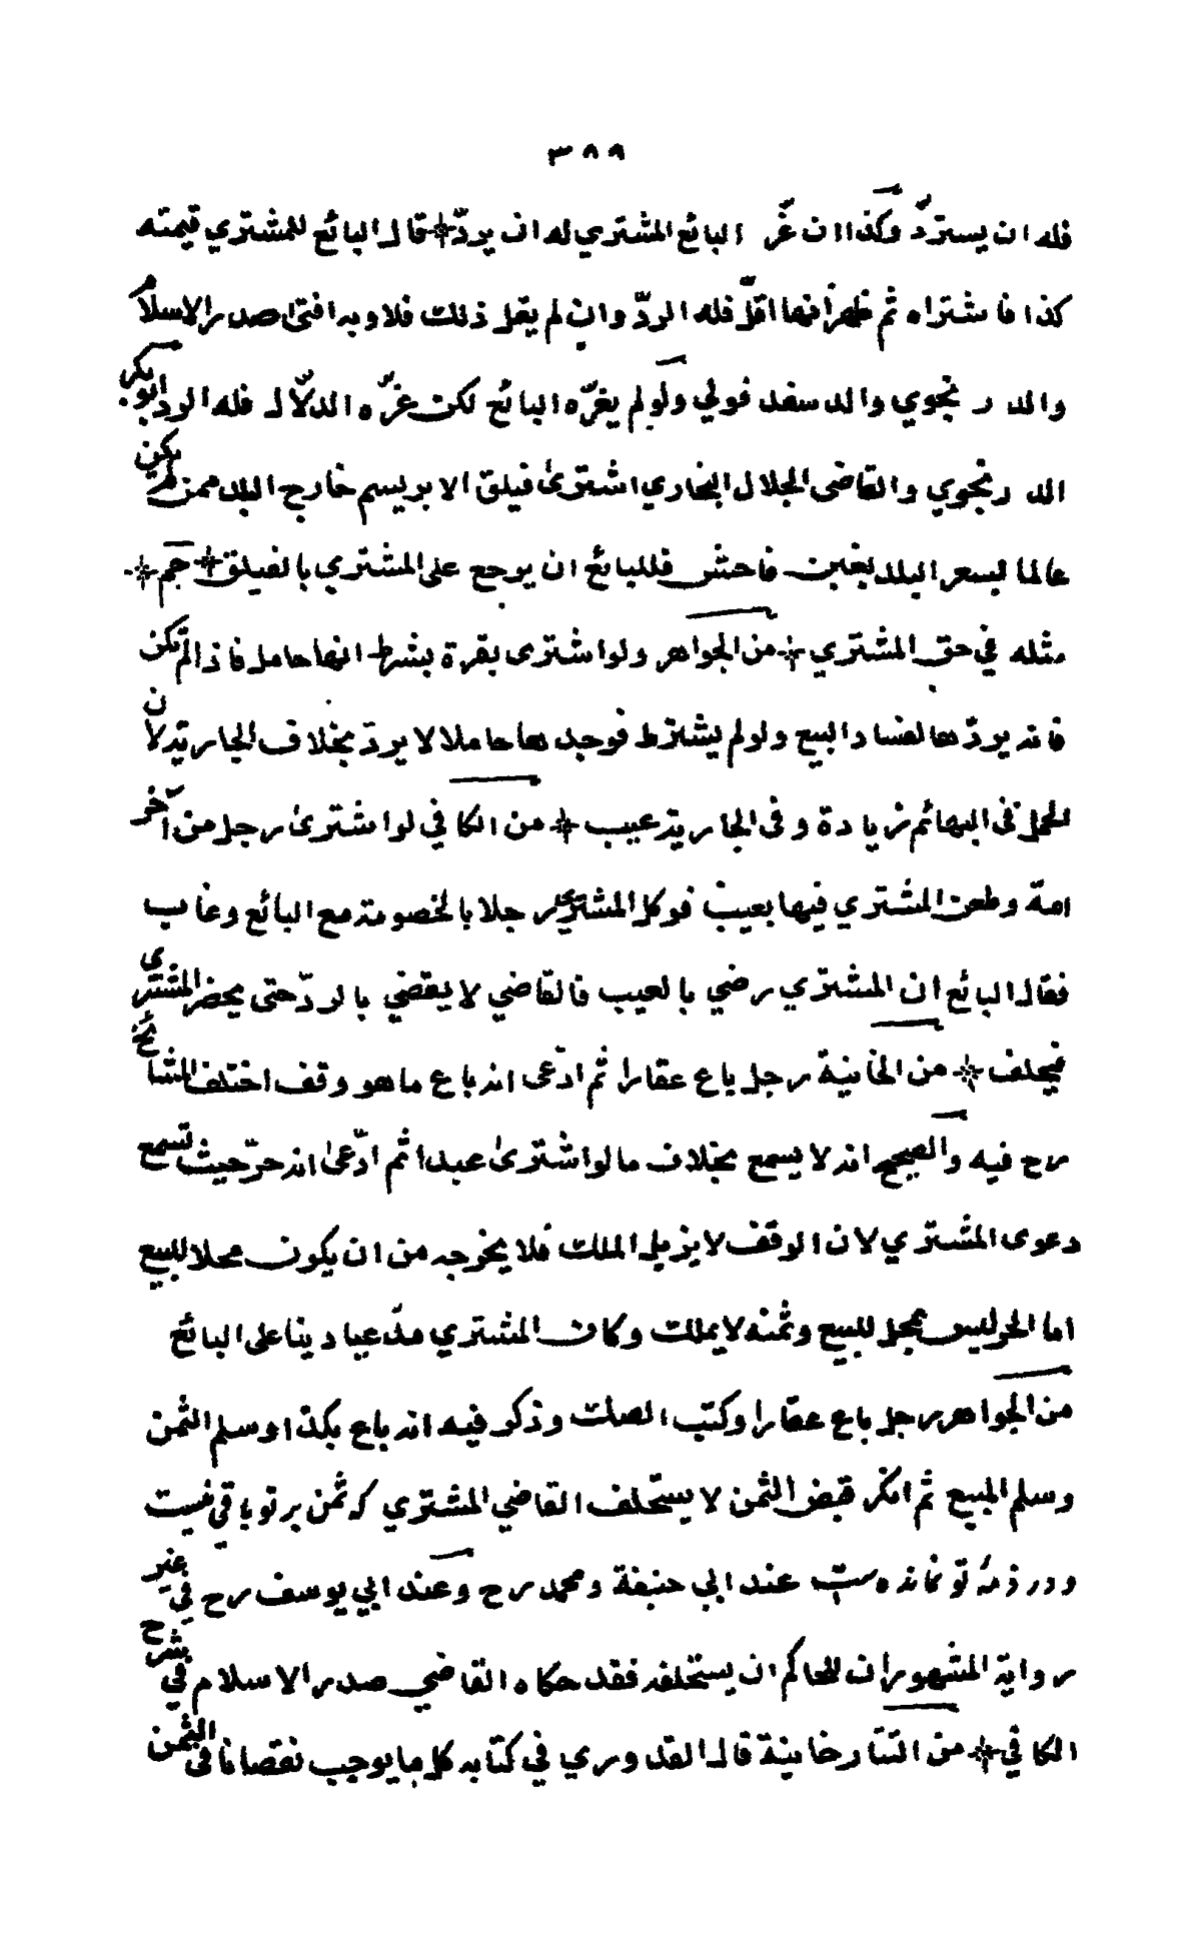 ٣٨٩
فله ان يستردّ وكذا ان غرّ البائع المشتري له ان يردّ * قال البائع للمشتري قيمته
كذا فاشتراه ثم ظهر أنها اقلّ فله الردّ وان لم يقل ذلك فلا وبه افتى صدر الاسلام
والد سفد فولي ولو لم يغرّه البائع لكن غرّه الدلّال فله الرد ابو بكر
والقاضى الجلال البخاري اشترىٰ فيلق الابريسم خارج البلد ممن لم يكن
عالما لسعر البلد بغبن فاحش فللبائع ان يرجع على المشتري بالفيلق * جم *
مثله في حق المشتري * من الجواهر ولو اشترى بقرة بشرط انها حامل فاذا لم تكن
فانه يردّها لفساد البيع ولو لم يشترط فوجدها حاملا لا يردّ بخلاف الجارية لان
الحمل فى البهائم زيادة وفى الجارية عيب * من الكافي لو اشترىٰ رجل من آخر
امة وطعن المشتري فيها بعيب فوكل المشتري رجلا بالخصومة مع البائع وغاب
فقال البائع ان المشتري رضي بالعيب فالقاضي لا يقضي بالردّ حتى يحضر المشترى
فيحلف * من الخانية رجل باع عقارا ثم ادّعى انه باع ما هو وقف اختلف المشائخ
رح فيه والصحيح انه لا يسمع بخلاف ما لو اشترىٰ عبدا ثم ادّعىٰ انه حرّ حيث تسمع
دعوى المشتري لان الوقف لا يزيل الملك فلا يخرجه من ان يكون محلا للبيع
اما الحر ليس بمحل للبيع وثمنه لا يملك وكان المشتري مدّعيا دينا على البائع
من الجواهر رجل باع عقارا وكتب الصك وذكر فيه انه باع بكذا وسلم الثمن
وسلم المبيع ثم انكر قبض الثمن لا يستحلف القاضي المشتري كه ثمن بر تو باقي نيست
ودر ذمه تو نمانده ست عند ابي حنيفة ومحمد رح وعند ابي يوسف رح في غير
رواية المشهور ان للحاكم ان يستحلفه فقد حكاه القاضي صدر الاسلام في شرح
الكافي * من التتارخانية قال القدوري في كتابه كل ما يوجب نقصانا فى الثمن